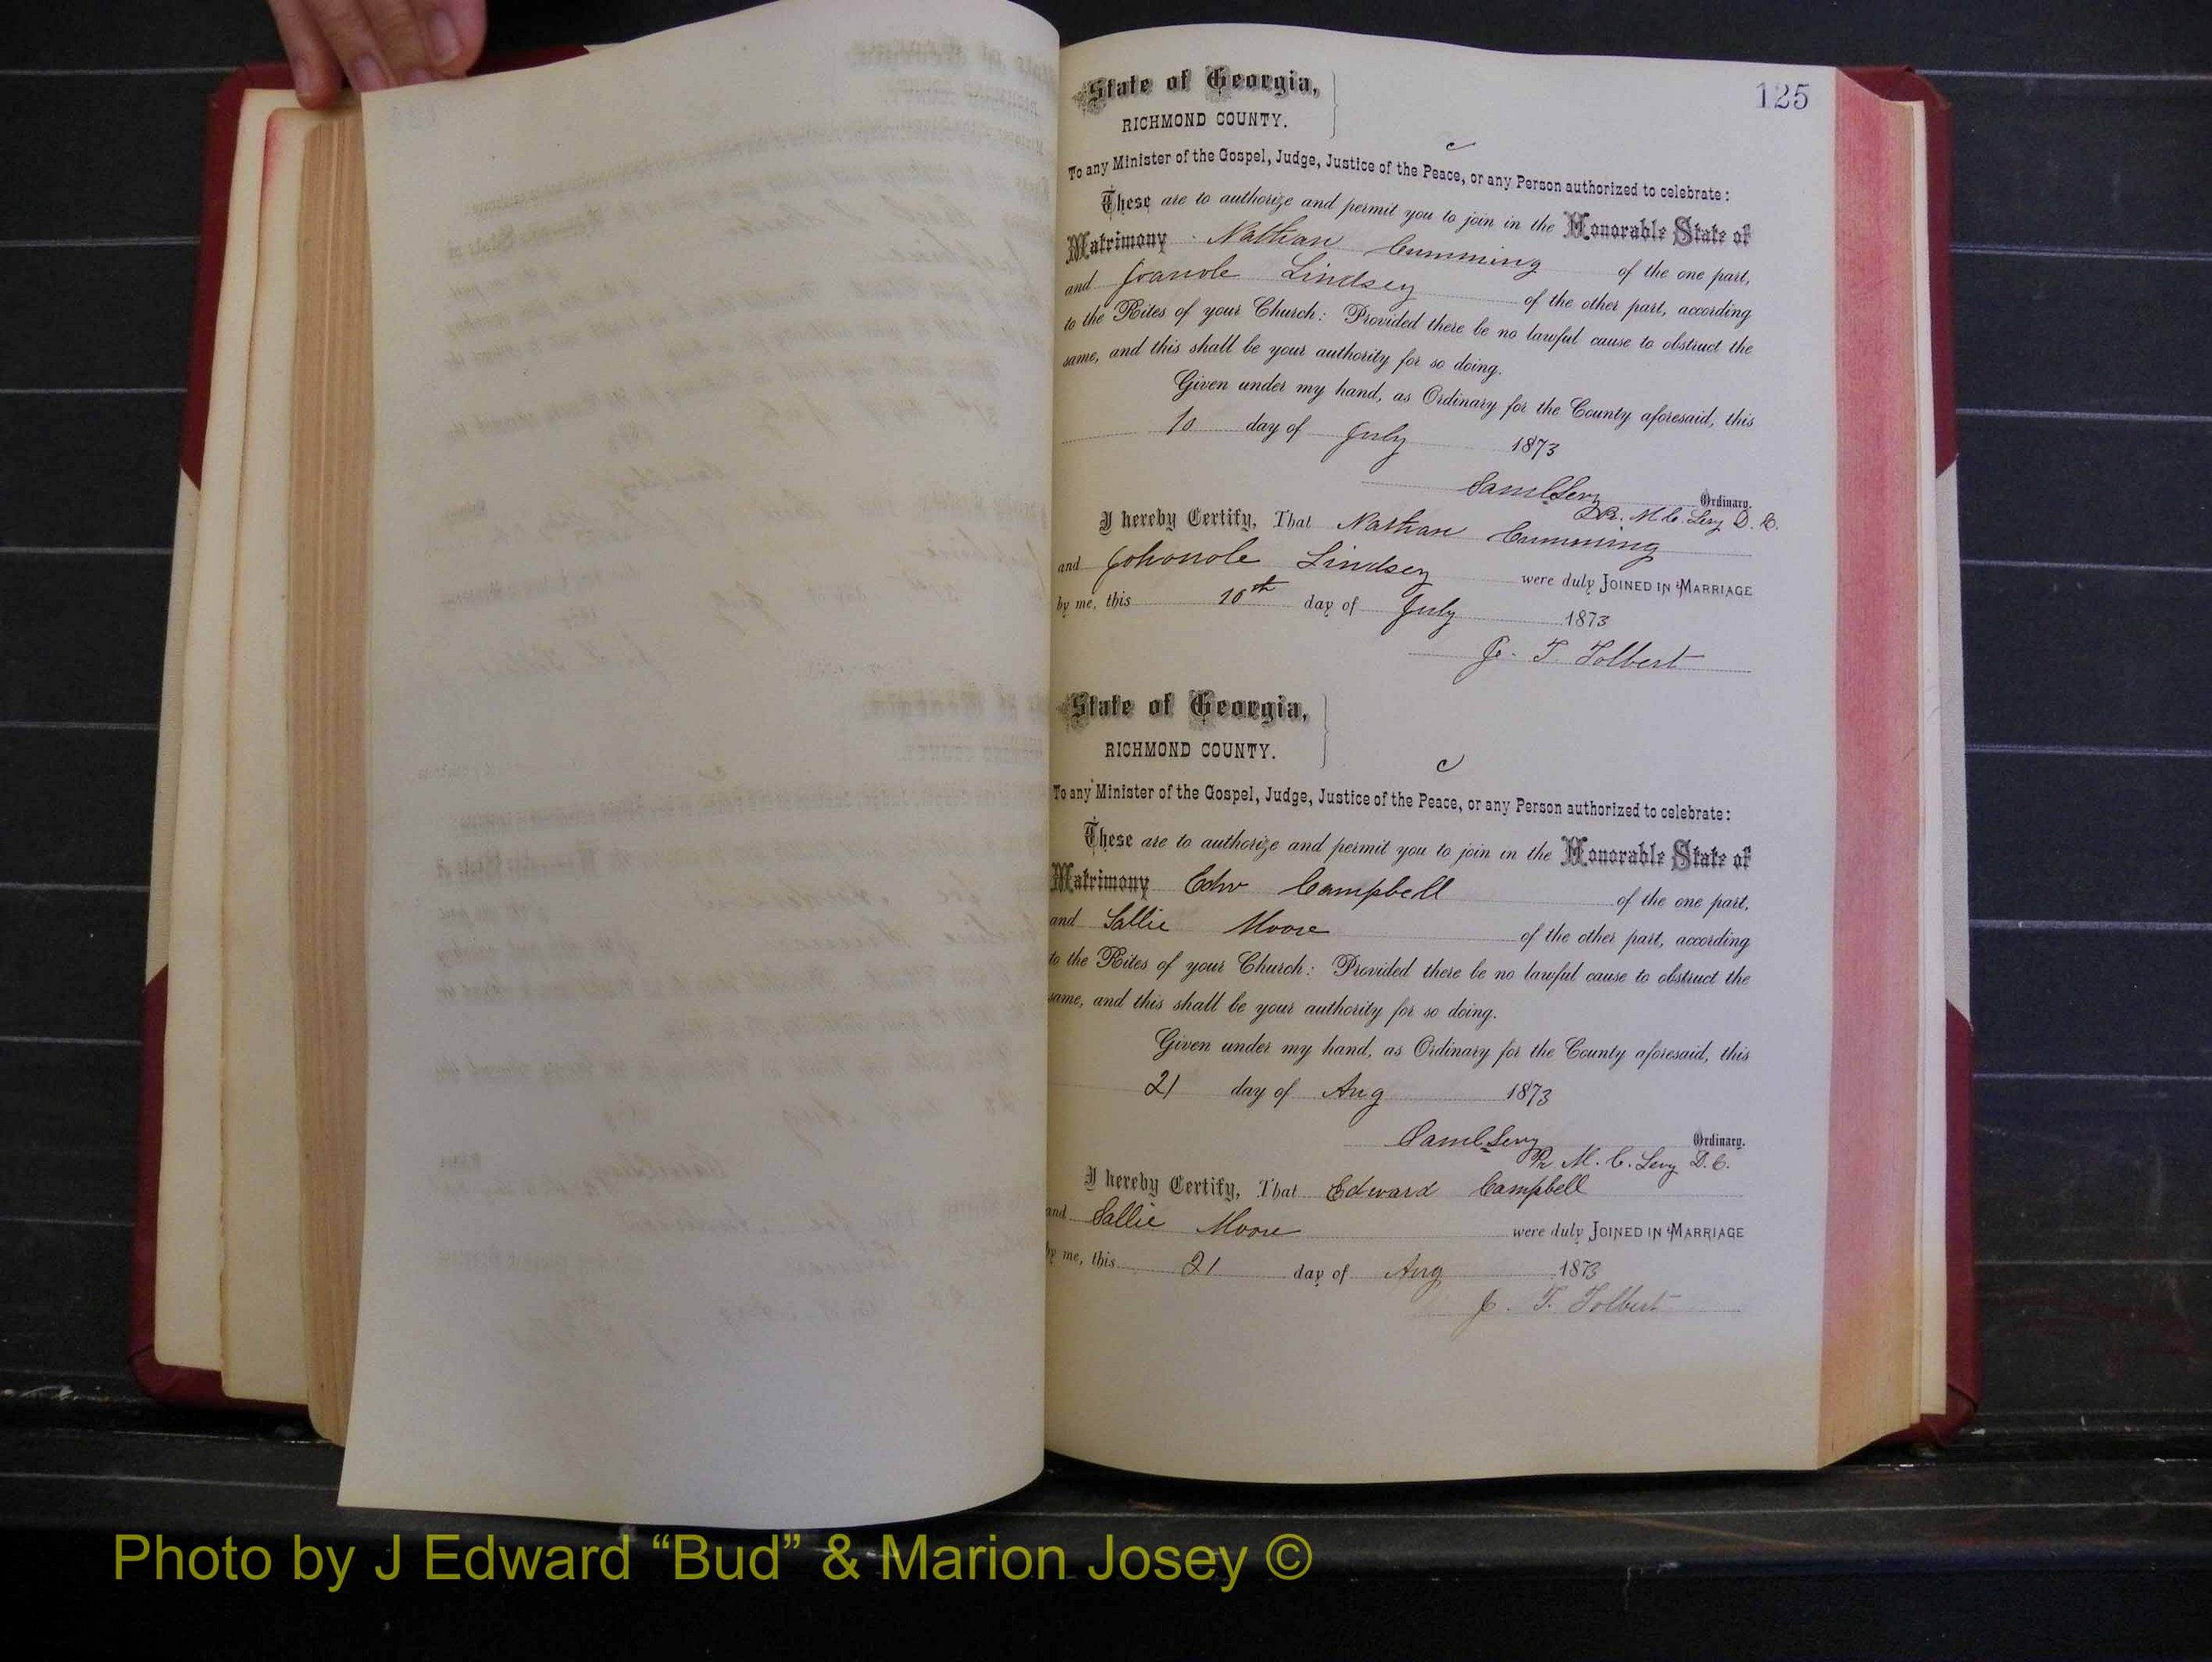 125
State of Georgia,
RICHMOND COUNTY.
c
To any Minister of the Gospel, Judge, Justice of the Peace, or any Person authorized to celebrate:
These are to authorize and permit you to join in the Honorable State of
Matrimony Nathan Cumming of the one part,
and Joanole Lindsey of the other part, according
to the Rites of your Church: Provided there be no lawful cause to obstruct the
same, and this shall be your authority for so doing.
Given under my hand, as Ordinary for the County aforesaid, this
10 day of July 1873
Saml Levy Ordinary.
Pr. M. C. Levy D. C.
I hereby Certify, That Nathan Cumming
and Johonole Lindsey were duly JOINED IN MARRIAGE
by me, this 10th day of July 1873
J. T. Tolbert
State of Georgia,
RICHMOND COUNTY.
c
To any Minister of the Gospel, Judge, Justice of the Peace, or any Person authorized to celebrate:
These are to authorize and permit you to join in the Honorable State of
Matrimony Edw Campbell of the one part,
and Sallie Moore of the other part, according
to the Rites of your Church: Provided there be no lawful cause to obstruct the
same, and this shall be your authority for so doing.
Given under my hand, as Ordinary for the County aforesaid, this
21 day of Aug 1873
Saml Levy Ordinary.
Pr M. C. Levy D. C.
I hereby Certify, That Edward Campbell
and Sallie Moore were duly JOINED IN MARRIAGE
by me, this 21 day of Aug 1873
J. T. Tolbert
Photo by J Edward “Bud” & Marion Josey ©